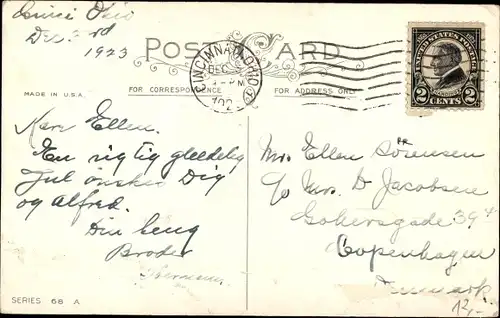 Ohio
Dec 3rd
1923
POST CARD
CINCINNATI, OHIO
DEC
PM
192
UNITED STATES POSTAGE
2 CENTS 2
MADE IN U.S.A.
FOR CORRESPONDENCE
FOR ADDRESS ONLY
Kære Ellen.
En rigtig glædelig
Jul ønsker Dig
og Alfred.
Din
Broder
Mrs. Ellen Sørensen
c/o Mrs. D Jacobsen
Gothersgade 39
Copenhagen
Denmark
12,-
SERIES 68 A